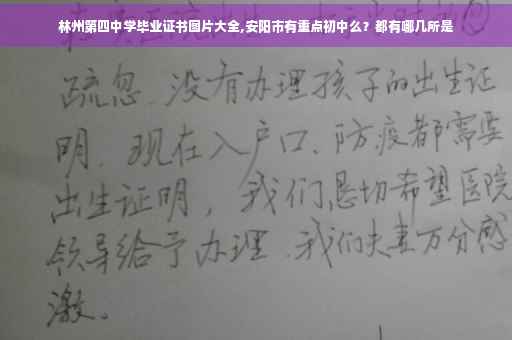 林州第四中学毕业证书图片大全,安阳市有重点初中么？都有哪几所是
疏忽、没有办理孩子的出生证
明、现在入户口、防疫都需要
出生证明，我们恳切希望医院
领导给予办理、我们夫妻万分感
激。